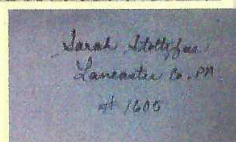 Sarah Stoltzfus
Lancaster Co. PA
# 1606